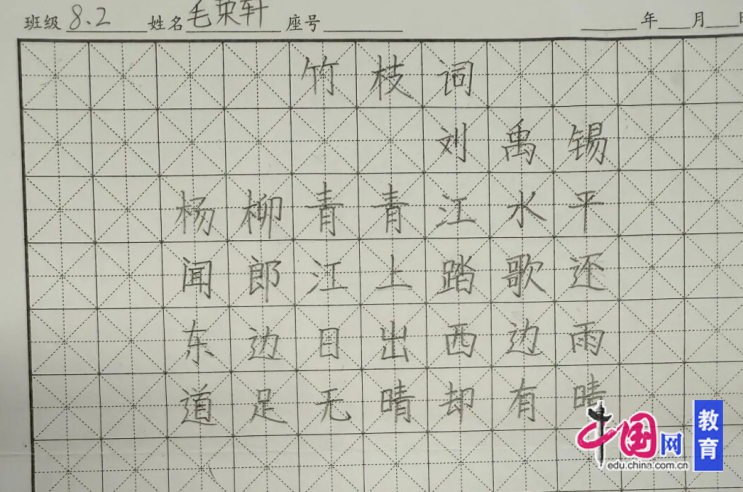 班级 8.2 姓名 毛束轩 座号 年 月 日
竹枝词
刘禹锡
杨柳青青江水平
闻郎江上踏歌还
东边日出西边雨
道足无晴却有晴
中国网 教育
edu.china.com.cn